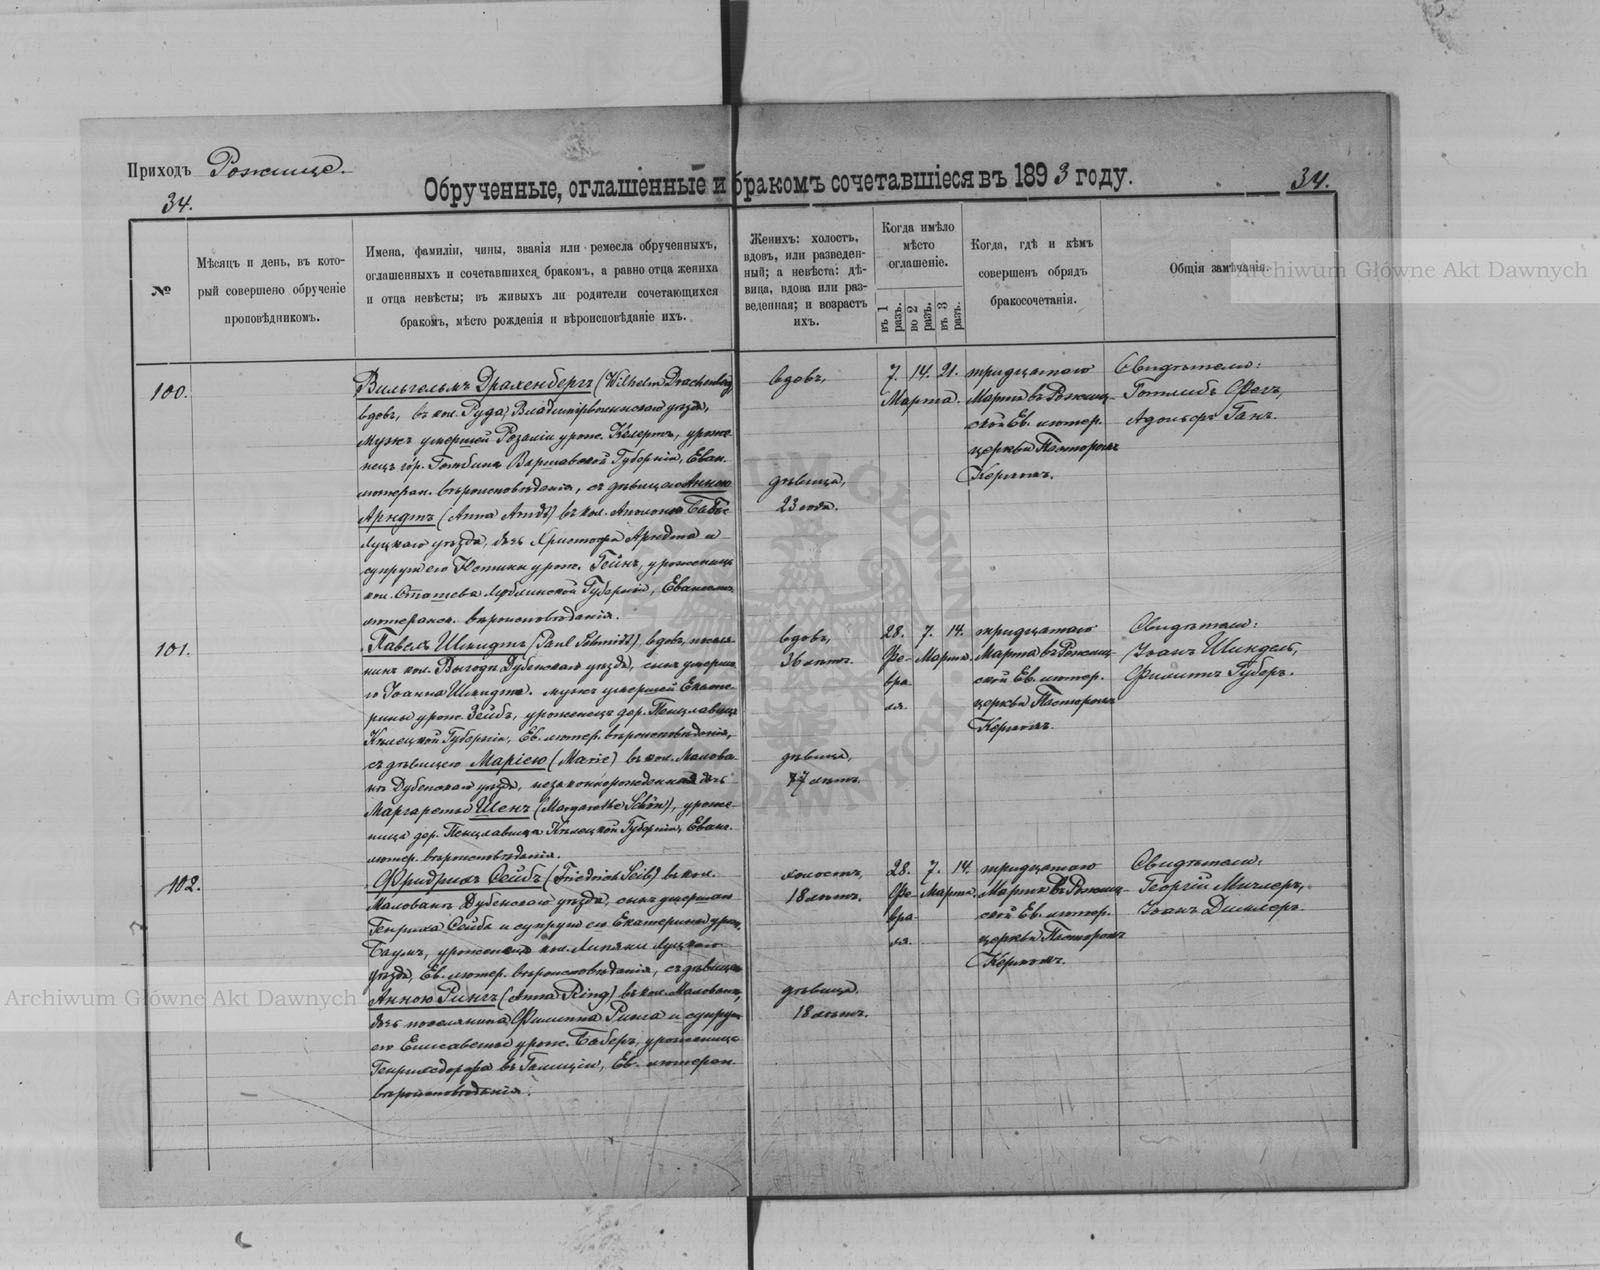 Приходъ Рожище.
Обрученные, оглашенные и бракомъ сочетавшіеся въ 1893 году.
34.
34.
№
Мѣсяцъ и день, въ кото-
рый совершено обрученіе
проповѣдникомъ.
Имена, фамиліи, чины, званія или ремесла обрученныхъ,
оглашенныхъ и сочетавшихся бракомъ, а равно отца жениха
и отца невѣсты; въ живыхъ ли родители сочетающихся
бракомъ, мѣсто рожденія и вѣроисповѣданіе ихъ.
Женихъ: холостъ,
вдовъ, или разведен-
ный; а невѣста: дѣ-
вица, вдова или раз-
веденная; и возрастъ
ихъ.
Когда имѣло
мѣсто
оглашеніе.
въ 1 разъ.
во 2 разъ.
въ 3 разъ.
Когда, гдѣ и кѣмъ
совершенъ обрядъ
бракосочетанія.
Общія замѣчанія.
Archiwum Główne Akt Dawnych
100.
Вильгельмъ Драхенбергъ (Wilhelm Drachenberg)
вдовъ, въ кол. Руда, Владимірволынскаго уѣзда,
мужъ умершей Розаліи урож. Келертъ, уроже-
нецъ гор. Гомбина Варшавской Губерніи, Еван.
лютеран. вѣроисповѣданія, съ дѣвицею Анною
Арндтъ (Anna Arndt) въ кол. Аполонія
Луцкаго уѣзда, дочь Христофа Арндта и
супруги его Юстины урож. Гейнъ, уроженица
кол. Сташева Люблинской Губерніи, Евангел.
лютеранск. вѣроисповѣданія.
вдовъ,
дѣвица,
23 года.
7. 14. 21.
Марта.
тридцатаго
Марта въ Рожищ-
ской Ев. лютер.
церкви Пасторомъ
Кермъ.
Свидѣтели:
Готлибъ Фосъ,
Адольфъ Ганъ.
101.
Павелъ Шмидтъ (Paul Schmidt), вдовъ, поселя-
нинъ кол. Выгода Дубенскаго уѣзда, сынъ умерша-
го Іоанна Шмидта, мужъ умершей Екате-
рины урож. Зейбъ, уроженецъ дер. Пенцлавица
Кѣлецкой Губерніи, Ев. лютер. вѣроисповѣданія,
съ дѣвицею Маріею (Marie) въ кол. Малова-
нъ Дубенскаго уѣзда, незаконнорожденная дочь
Маргареты Шенъ (Margarethe Schön), уроже-
ница дер. Пенцлавица Кѣлецкой Губерніи, Еванг.
лютер. вѣроисповѣданія.
вдовъ,
36 лѣтъ.
дѣвица,
17 лѣтъ.
28. 7. 14.
Фе- Марта.
вра-
ля.
тридцатаго
Марта въ Рожищ-
ской Ев. лютер.
церкви Пасторомъ
Кермъ.
Свидѣтели:
Іоанъ Шиндель,
Филиппъ Губеръ.
102.
Фридрихъ Сейбъ (Friedrich Seib) въ кол.
Малованъ Дубенскаго уѣзда, сынъ умершаго
Генриха Сейба и супруги его Екатерины урож.
Баумъ, уроженецъ кол. Липяны Луцкаго
уѣзда, Ев. лютер. вѣроисповѣданія, съ дѣвицею
Анною Рингъ (Anna Ring) въ кол. Малованъ,
дочь поселянина Филиппа Ринга и супруги
его Елисаветы урож. Баберъ, уроженица
Генрихсдорфа въ Галиціи, Ев. лютеран.
вѣроисповѣданія.
холостъ,
18 лѣтъ.
дѣвица.
18 лѣтъ.
28. 7. 14.
Фе- Марта.
вра-
ля.
тридцатаго
Марта въ Рожищ-
ской Ев. лютер.
церкви Пасторомъ
Кермъ.
Свидѣтели:
Георгій Миллеръ,
Іоанъ Диллеръ.
Archiwum Główne Akt Dawnych